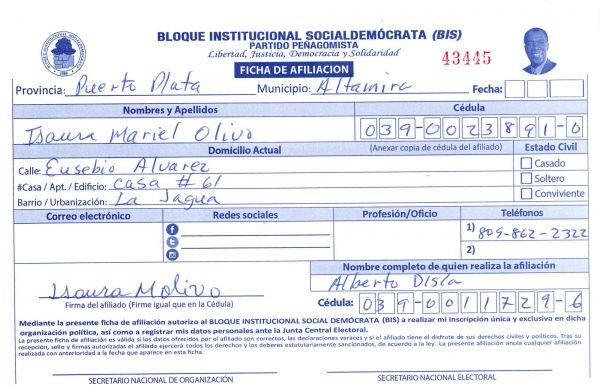 BLOQUE INSTITUCIONAL SOCIALDEMÓCRATA (BIS)
PARTIDO PEÑAGOMISTA
Libertad, Justicia, Democracia y Solidaridad
43445
FICHA DE AFILIACION
Provincia: Puerto Plata Municipio: Altamira Fecha:
Nombres y Apellidos Cédula
Isaura Mariel Olivo 039-0023891-0
Domicilio Actual (Anexar copia de cédula del afiliado) Estado Civil
Calle: Eusebio Alvarez Casado
#Casa / Apt. / Edificio: casa #61 Soltero
Barrio / Urbanización: La Jagua Conviviente
Correo electrónico Redes sociales Profesión/Oficio Teléfonos
1) 809-862-2322
2)
Nombre completo de quien realiza la afiliación
Alberto Disla
Isaura M Olivo
Firma del afiliado (Firme igual que en la Cédula) Cédula: 039-0011729-6
Mediante la presente ficha de afiliación autorizo al BLOQUE INSTITUCIONAL SOCIAL DEMÓCRATA (BIS) a realizar mi inscripción única y exclusiva en dicha
organización política, así como a registrar mis datos personales ante la Junta Central Electoral.
La presente ficha de afiliación es válida si los datos ofrecidos por el afiliado son correctas, las declaraciones veraces y si el afiliado tiene el disfrute de sus derechos civiles y políticos. Tras su
recepción, sello y firmas autorizadas el afiliado ejercerá todos los derechos y los deberes estatutariamente sancionados, de acuerdo a la ley. La presente afiliación anula cualquier afiliación
realizada con anterioridad a la fecha que aparece en esta ficha.
SECRETARIO NACIONAL DE ORGANIZACIÓN SECRETARIO NACIONAL ELECTORAL